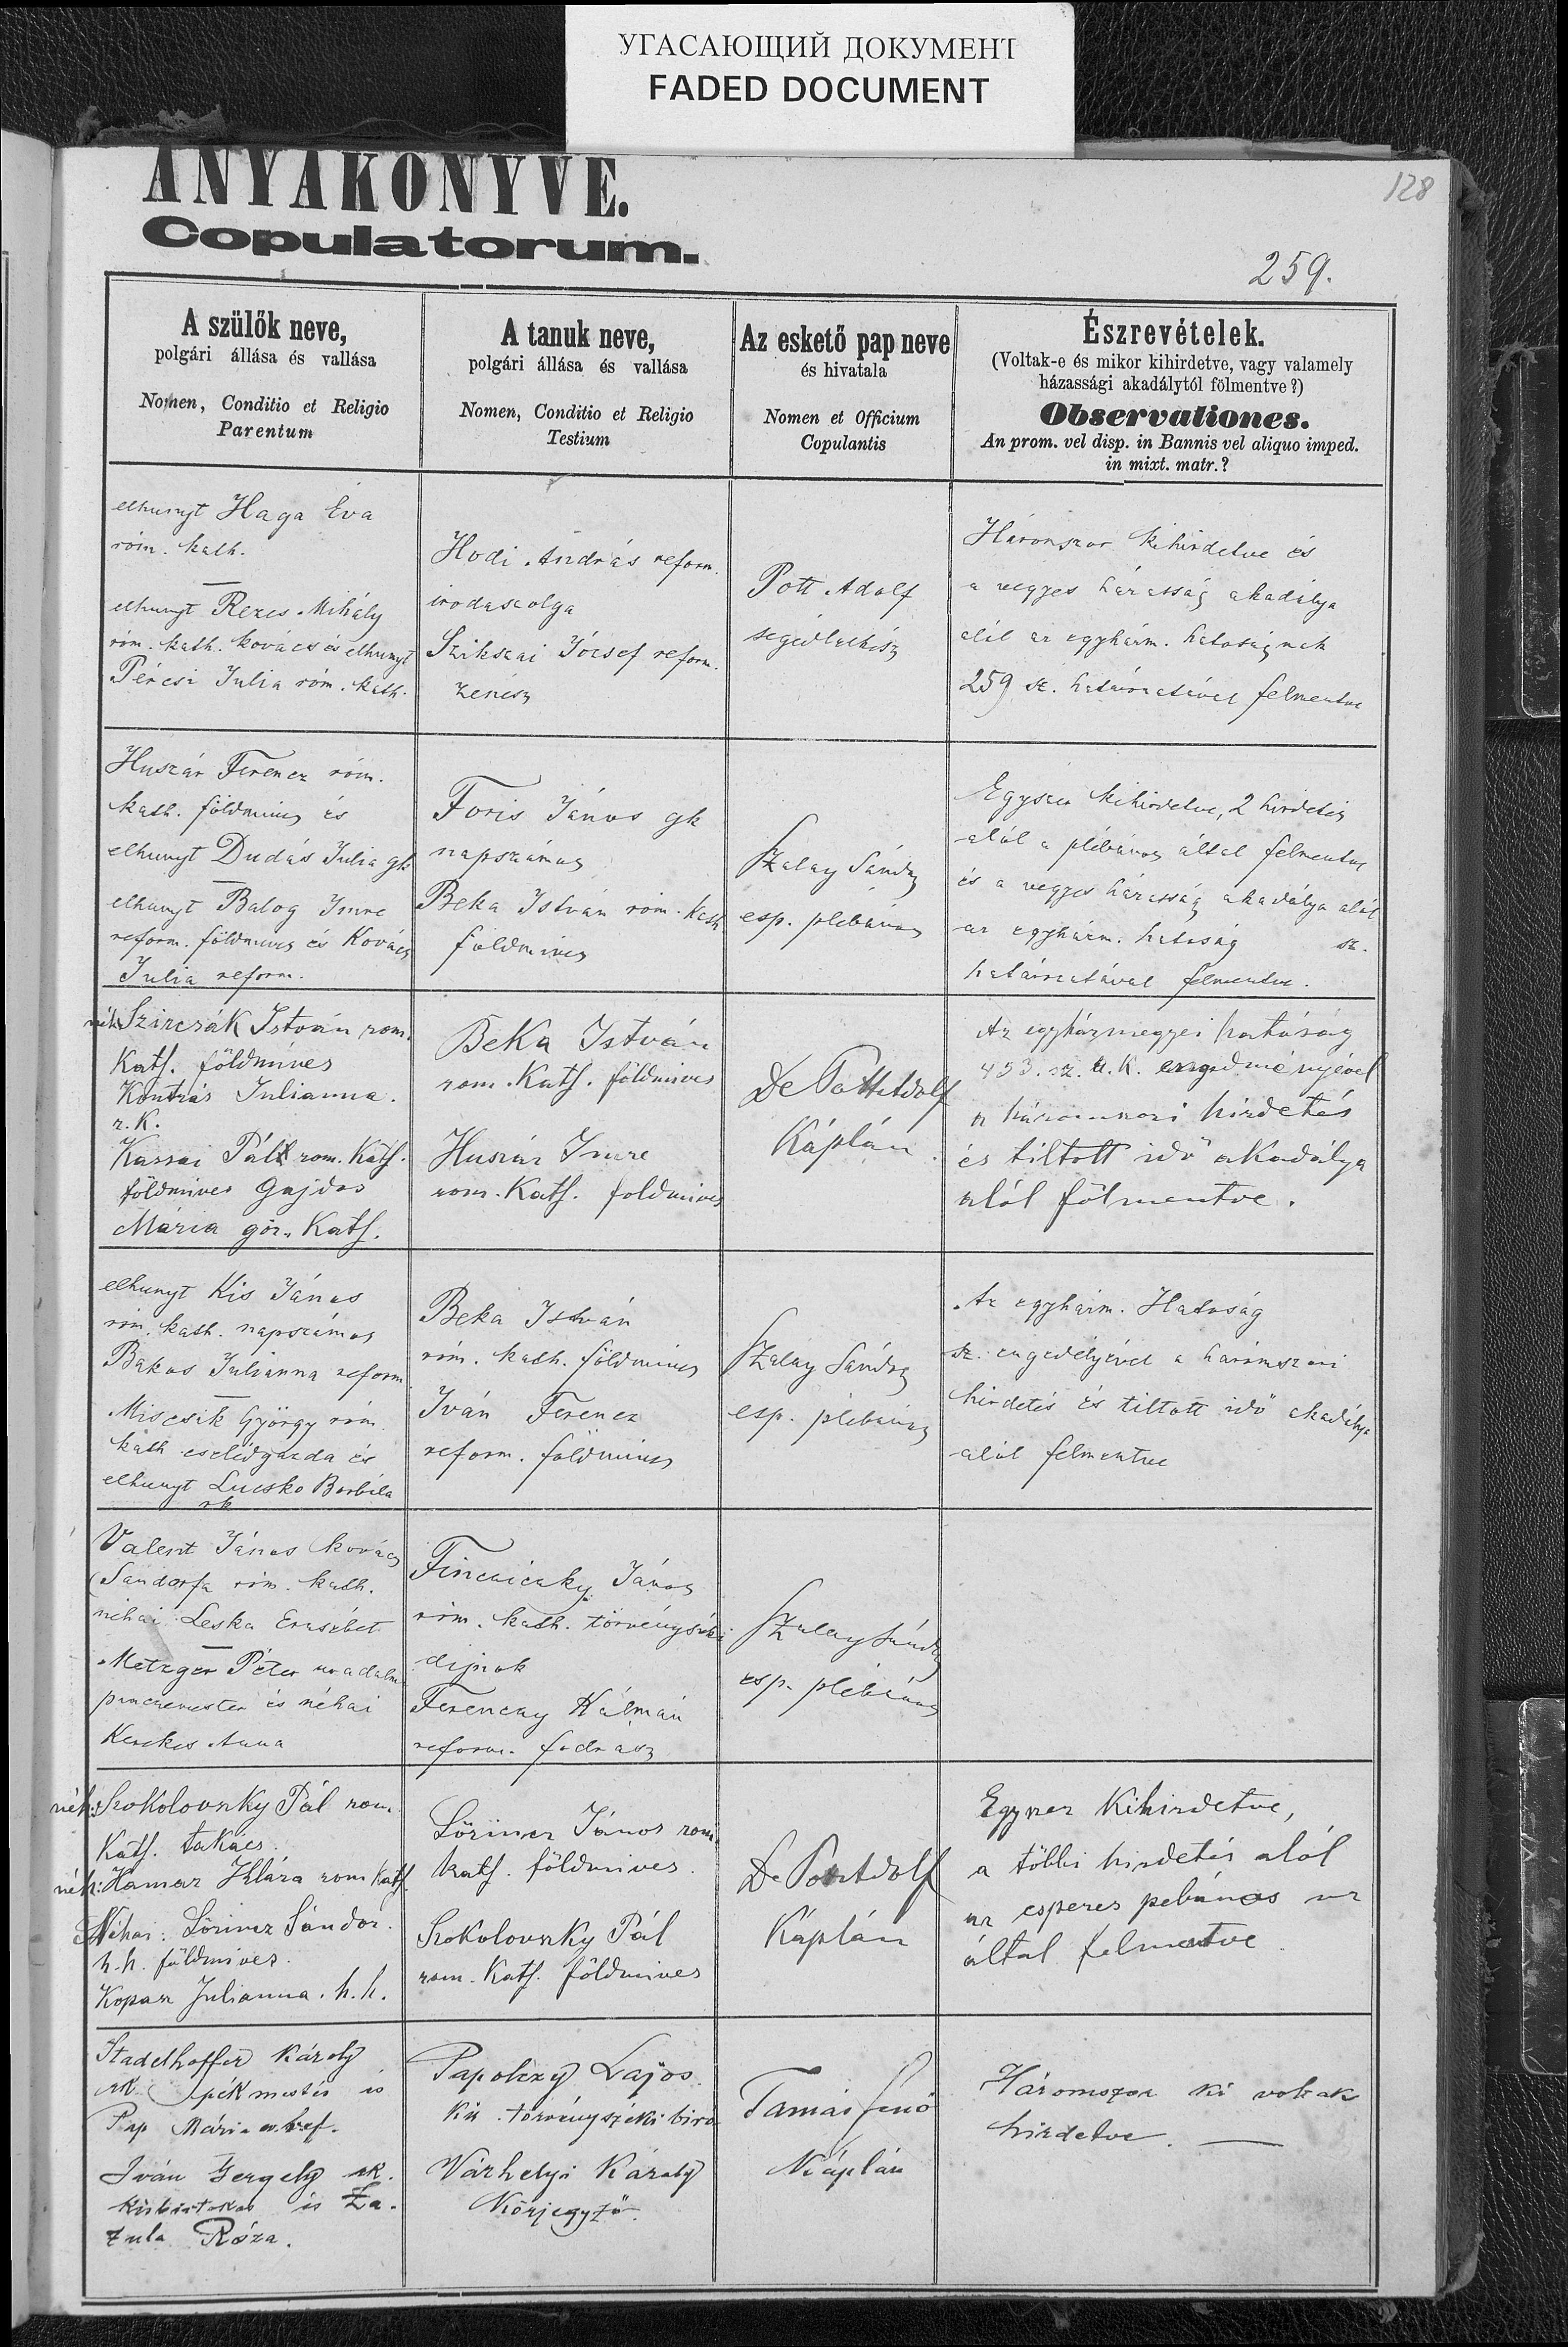 УГАСАЮЩИЙ ДОКУМЕНТ
FADED DOCUMENT
ANYAKÖNYVE.
Copulatorum.
128
259.
A szülők neve,
polgári állása és vallása
Nomen, Conditio et Religio
Parentum
A tanuk neve,
polgári állása és vallása
Nomen, Conditio et Religio
Testium
Az eskető pap neve
és hivatala
Nomen et Officium
Copulantis
Észrevételek.
(Voltak-e és mikor kihirdetve, vagy valamely
házassági akadálytól fölmentve?)
Observationes.
An prom. vel disp. in Bannis vel aliquo imped.
in mixt. matr.?
elhunyt Haga Éva
róm. kath.
elhunyt Rezes Mihály
róm. kath. kovács és elhunyt
Péresi Julia róm. kath.
Hodi András reform.
irodaszolga
Szikszai József reform.
zenész
Pott Adolf
segédlelkész
Háromszor kihirdetve és
a vegyes házasság akadálya
alól az egyházm. hatóságnak
259 sz. határozatával felmentve
Huszár Ferencz róm.
kath. földmíves és
elhunyt Dudás Julia gk
elhunyt Balog Imre
reform. földmíves és Kovács
Julia reform.
Foris János gk
napszámos
Beka István róm. kath
földmíves
Szalay Sándor
esp. plébános
Egyszer kihirdetve, 2 hirdetés
alól a plébános által felmentve
és a vegyes házasság akadálya alól
az egyházm. hatóság sz.
határozatával felmentve.
néh. Szirczák István rom.
Kath. földmíves
Kontrás Julianna.
r. K.
Kassai Pál rom. Kath.
földmíves Gajdos
Mária gör. Kath.
Beka István
rom. Kath. földmíves
Huszár Imre
rom. Kath. foldmives
De Pott Adolf
Káplán
Az egyházmegyei hatóság
453. sz. a. K. engedményével
a háromszori hirdetés
és tiltott idő akadálya
alól fölmentve.
elhunyt Kis János
róm. kath. napszámos
Bakos Julianna reform.
Miscsik György róm
kath cselédgazda és
elhunyt Lucsko Borbála
rk
Beka István
róm. kath. földmíves
Iván Ferencz
reform. földmíves
Szalay Sándor
esp. plébános
Az egyházm. Hatóság
sz. engedélyével a háromszori
hirdetés és tiltott idő akadálya
alól felmentve
Valent János kovács
Sandorfa róm. kath.
néhai Leska Erzsébet
Metzger Péter uradalmi
pinczemester és néhai
Kerekes Anna
Finczicky János
róm. kath. törvényszéki
dijnok
Ferenczy Kálmán
reform. fodrász
Szalay Sándor
esp. plébános
néh: Szokolovszky Pál rom.
Kath. takács.
néh: Hamar Klára rom Kath.
Néhai: Lőrincz Sándor.
h.h. földmives.
Kopasz Julianna. h.h.
Lőrincz János rom.
Kath. földmives.
Szokolovszky Pál
rom. Kath. földmives
De Pott Adolf
Káplán
Egyszer Kihirdetve,
a többi hirdetés alól
az esperes plebános ur
által felmentve.
Stadelhoffer Károly
rk pékmester és
Pap Mária ev. ref.
Iván Gergely rk.
kisbirtokos és Za-
zula Róza.
Papolczy Lajos
kir. törvényszéki biró
Várhelyi Károly
Körjegyző.
Tamás Jenő
Káplán
Háromszor ki voltak
hirdetve.